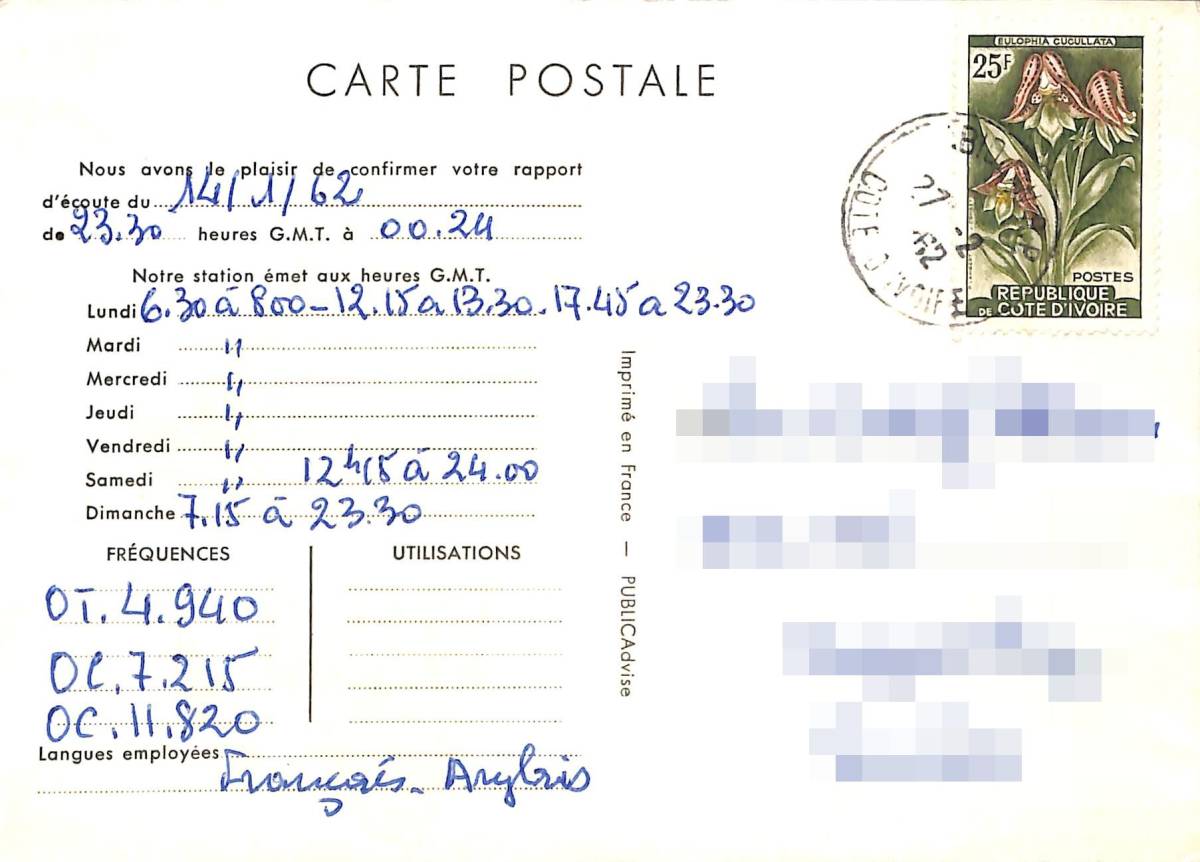 CARTE POSTALE
Nous avons le plaisir de confirmer votre rapport
d'écoute du 14/1/62
de 23.30 heures G.M.T. à 00.24
Notre station émet aux heures G.M.T.
Lundi 6.30 à 800 - 12.15 a 13.30. 17.45 a 23.30
Mardi "
Mercredi "
Jeudi "
Vendredi "
Samedi " 12h15 à 24.00
Dimanche 7.15 à 23.30
FRÉQUENCES
UTILISATIONS
OT. 4.940
OC. 7.215
OC. 11.820
Langues employées Français. Anglais
Imprimé en France — PUBLICAdvise
EULOPHIA CUCULLATA
25F
POSTES
REPUBLIQUE
DE COTE D'IVOIRE
27 -2
62
COTE D'IVOIRE